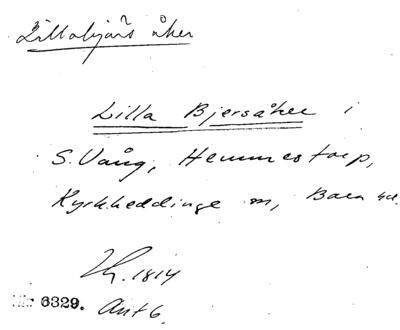 Lillabjärs åker
Lilla Bjersåker i
S. Vång, Hemmestorp,
Kyrkheddinge sn, Bara hd.
Lh. 1814
Nr 6329. Akt 6.